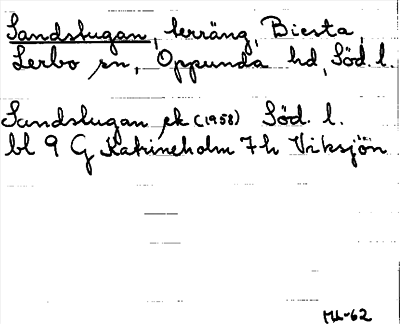 Sandslugan, terräng, Biesta,
Lerbo sn, Oppunda hd, Söd. l.
Sandslugan ek (1958) Söd. l.
bl 9 G Katrineholm 7 h Viksjön
ML-62